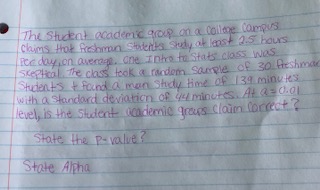 The student academic group on a College Campus
Claims that freshman students study at least 2.5 hours
per day, on average. One Intro to Stats class was
skeptical. The class took a random sample of 30 freshman
Students + found a mean study time of 139 minutes
with a standard deviation of 44 minutes. At α = 0.01
level, is the student academic groups claim correct?
State the P-value?
State Alpha